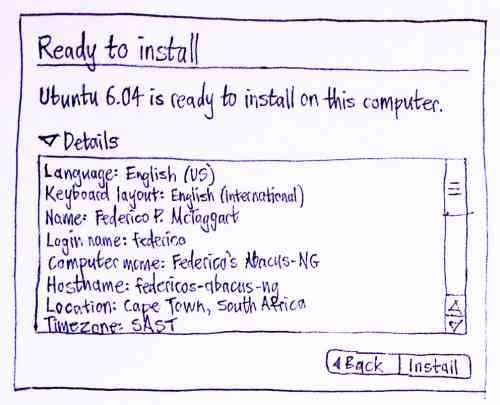 Ready to install
Ubuntu 6.04 is ready to install on this computer.
Details
Language: English (US)
Keyboard layout: English (International)
Name: Federico P. McTaggart
Login name: federico
Computer name: Federico's Abacus-NG
Hostname: federicos-abacus-ng
Location: Cape Town, South Africa
Timezone: SAST
Back Install